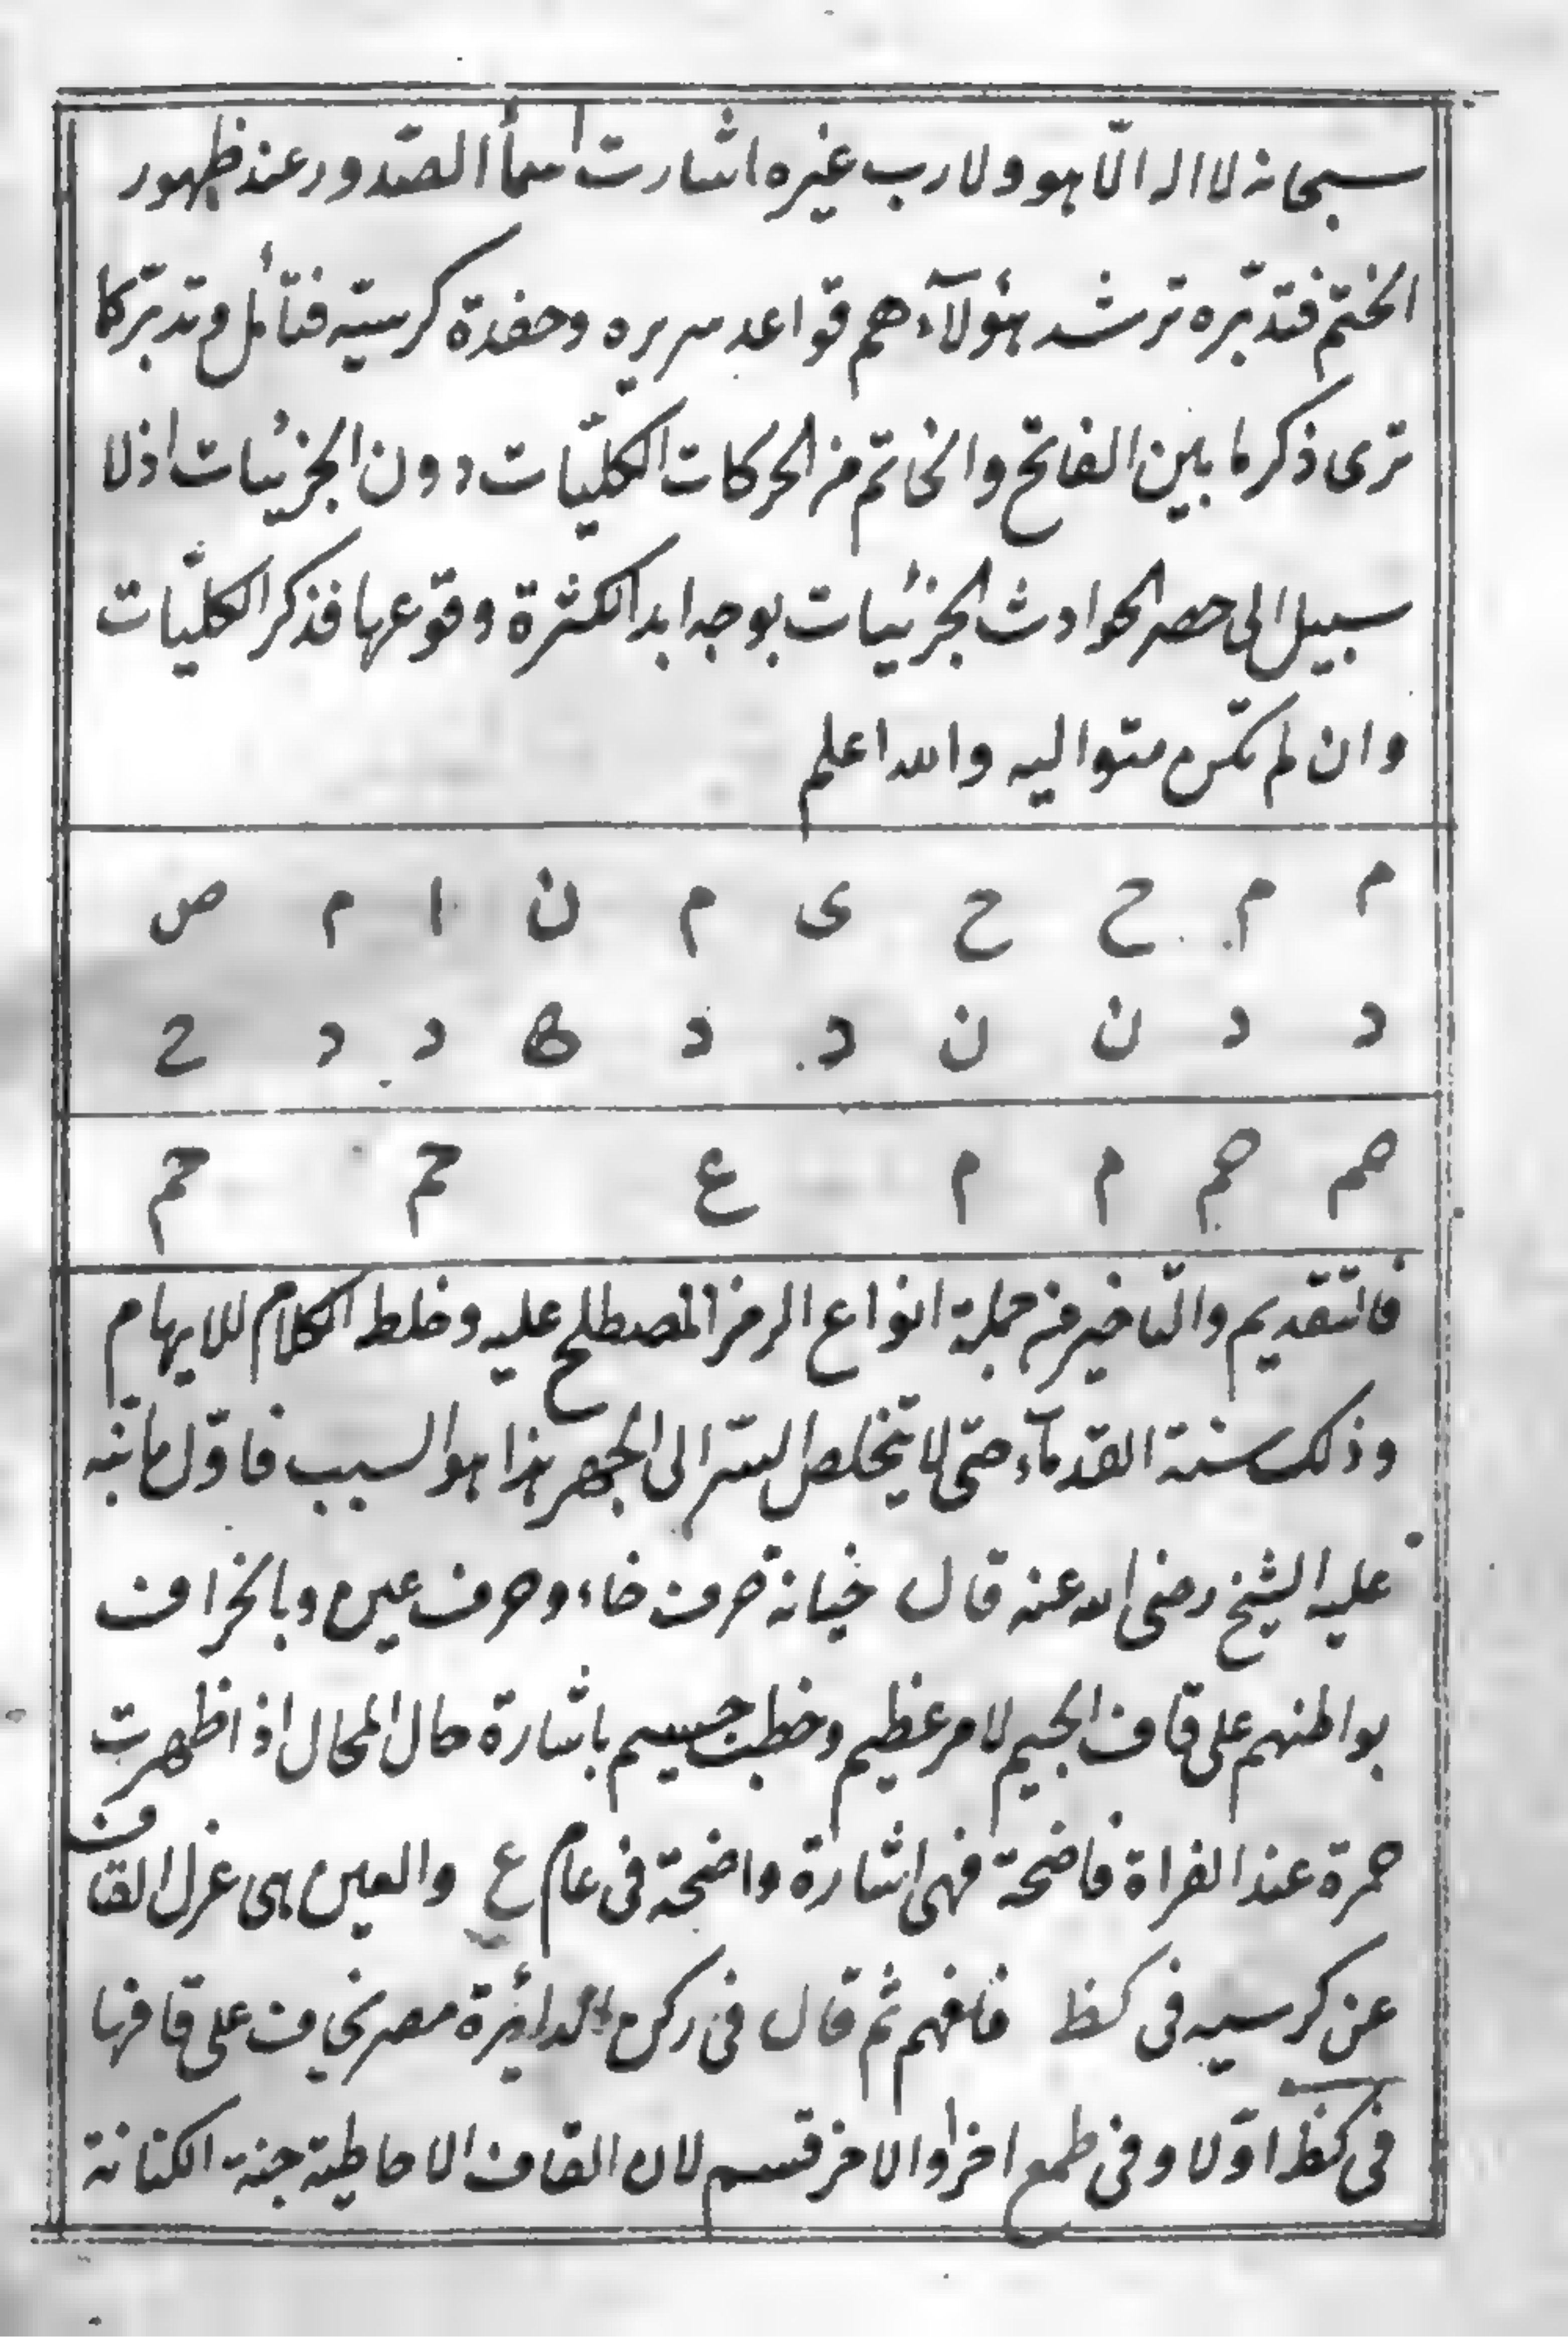 سبحانه لا اله الّا هو ولا رب غيره اشارت اسمأ الصّدور عند ظهور
الختم فتدبّره ترشد هؤلآء هم قواعد سريره وحفدة كرسيّه فتأمل وتدبّر كما
ترى ذكر ما بين الفاتح والخاتم من الحركات الكليّات دون الجزئيات اذ لا
سبيل الى حصر الحوادث الجزئيات بوجه ابدا لكثرة وقوعها فذكر الكليّات
وان لم تكن متواليه والله اعلم
م م ح ح ى م ن ا م ص
د د ن ن د د ه د د ح
هم هم م م ع حم حم
فالتقديم والتاخير من جملة انواع الرمز المصطلح عليه وخلط الكلام للايهام
وذلك سنة القدمآء حتى لا يتخلص السّر الى الجهر هذا هو السبب فاوّل ما نبّه
عليه الشيخ رضى الله عنه قال خيانة حرف خاء وحرف عين وبانحراف
بواطنهم على قاف الجيم لامر عظيم وخطب جسيم باشارة حال المحال اذ اظهرت
حمرة عند الفراة فاضحة فهى اشارة واضحة فى عام ع والعين هى عزل القاف
عن كرسيه فى كنظ فافهم ثم قال فى ركن الدائرة مصر نخاف على قافها
فى كنظ اوّلا وفى طمع اخرا والاخر قسم لان القاف الاحاطية جنة الكنانة